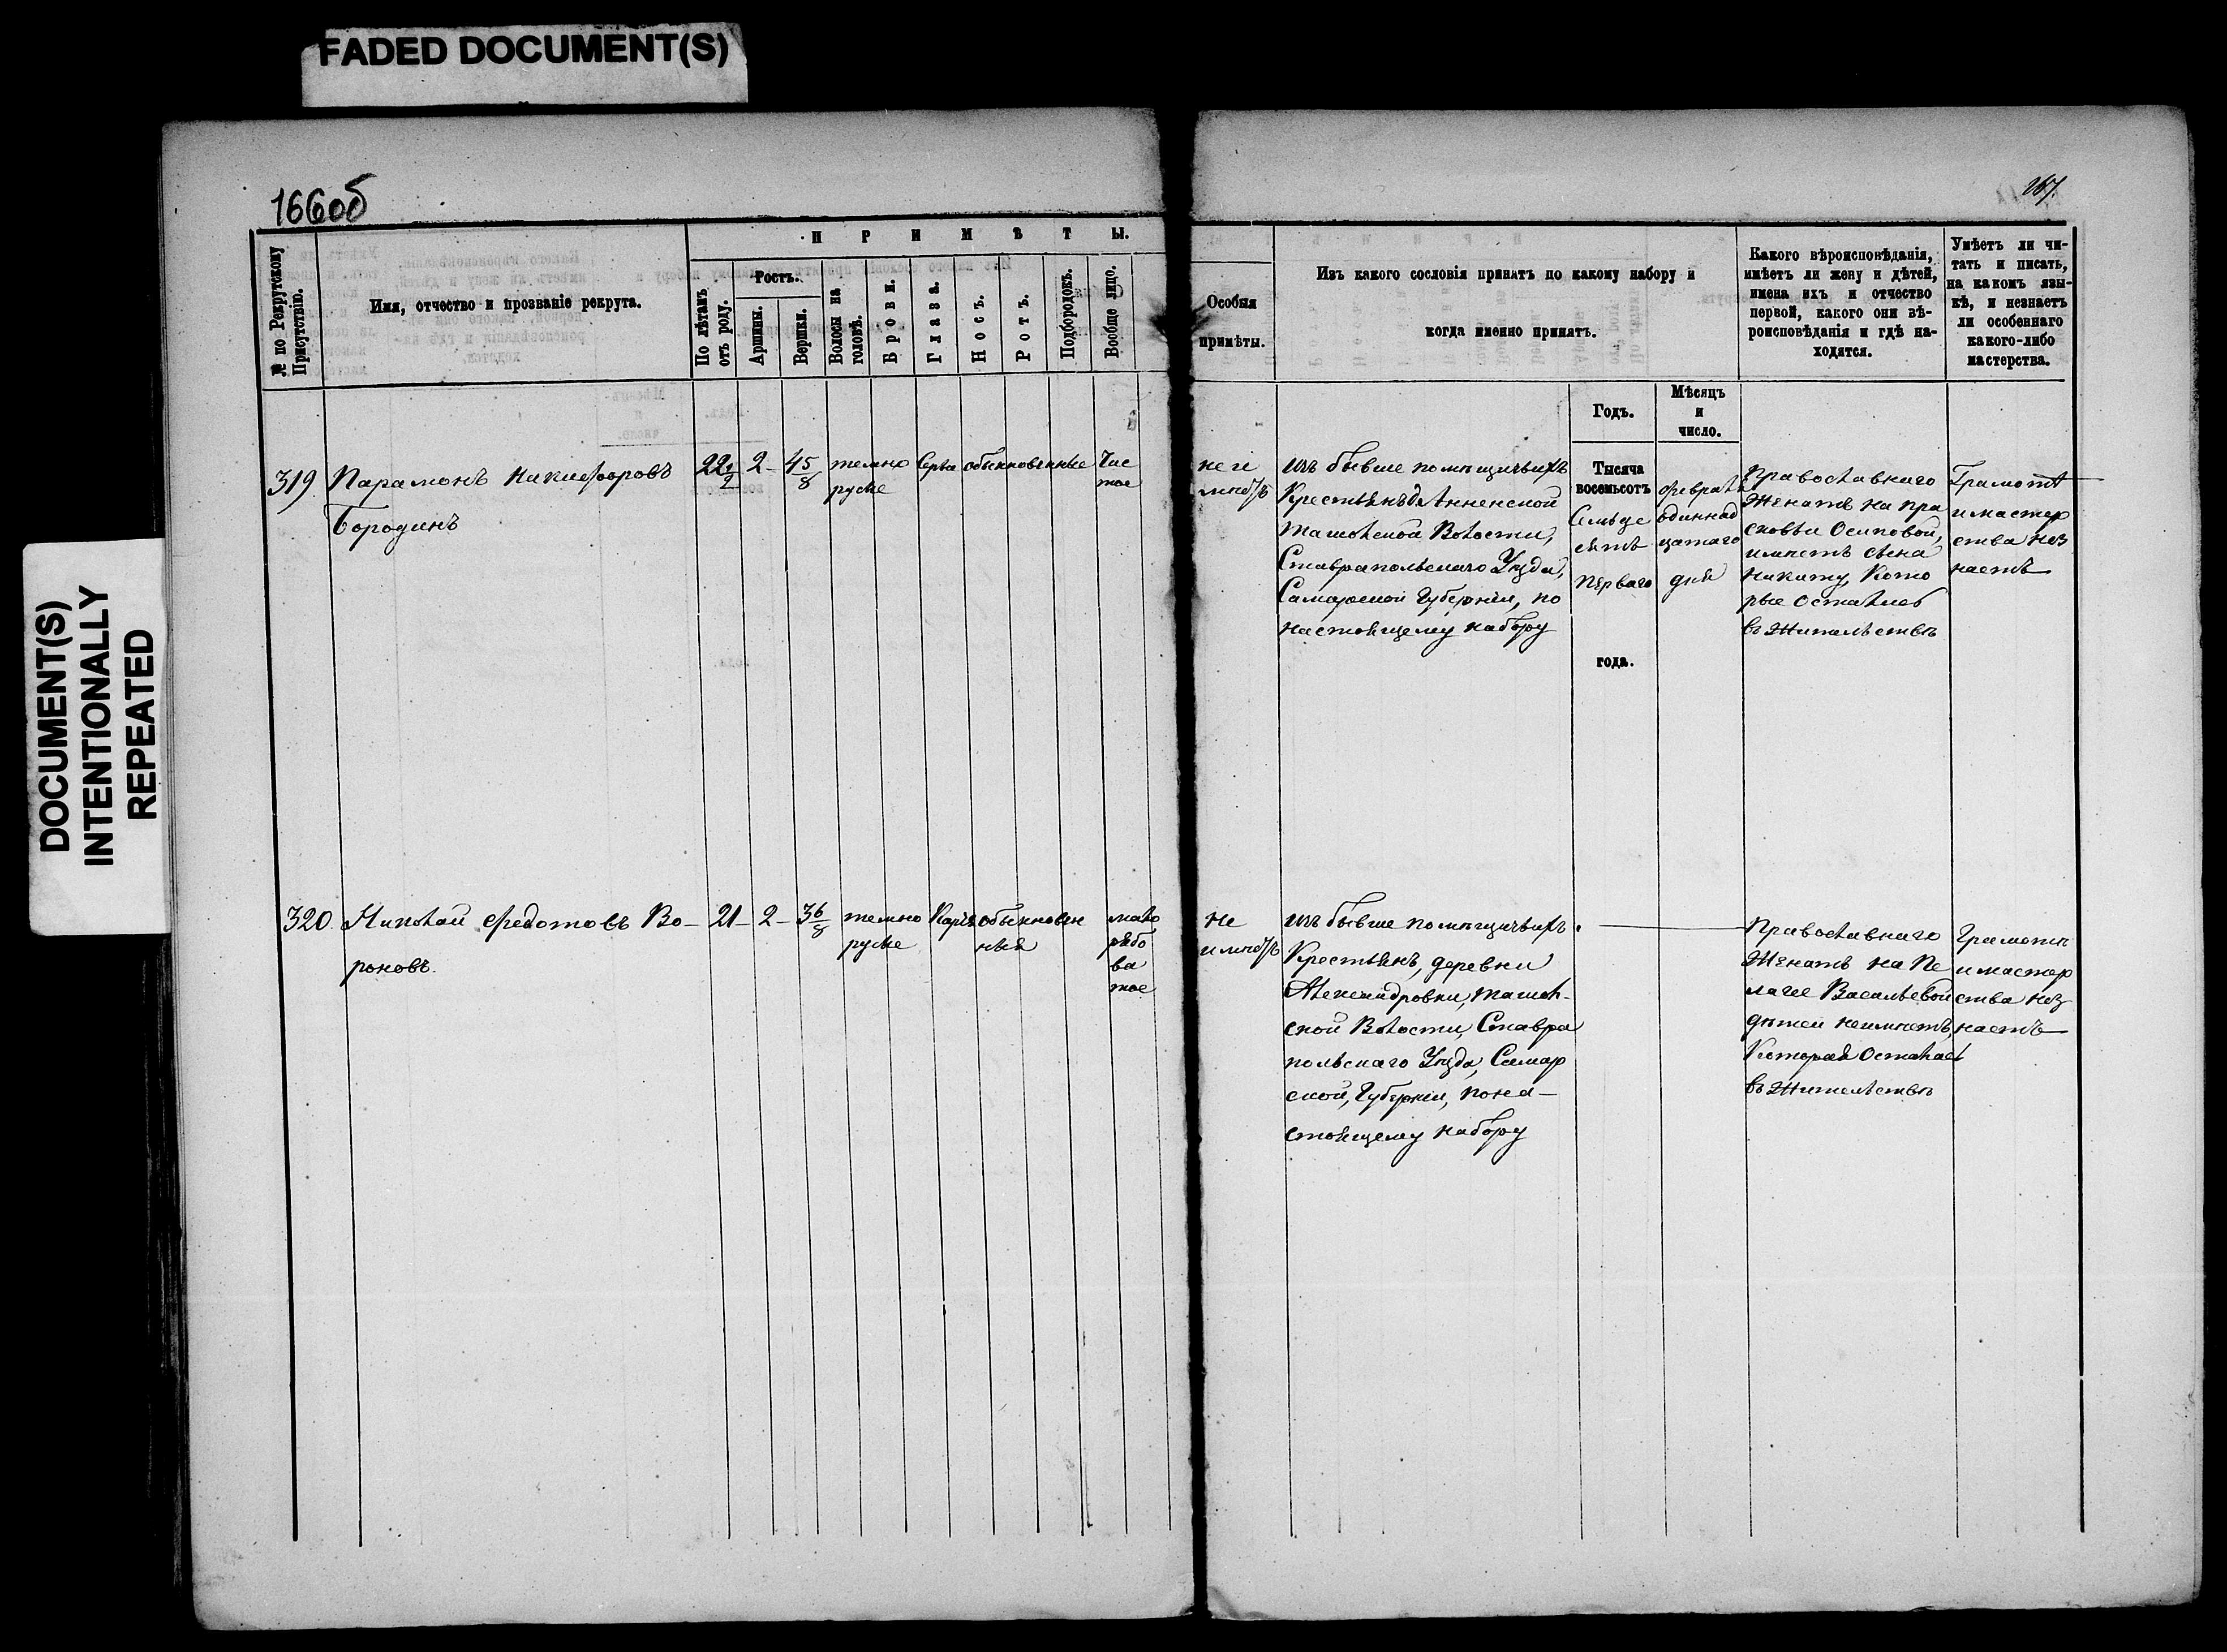 FADED DOCUMENT(S)
DOCUMENT(S)
INTENTIONALLY
REPEATED
166об
167.
№ по Рекрутскому
Присутствію.
Имя, отчество и прозваніе рекрута.
П Р И М Ѣ Т Ы.
По лѣтамъ
отъ роду.
Ростъ.
Аршины.
Вершки.
Волосы на
головѣ.
Брови.
Глаза.
Носъ.
Ротъ.
Подбородокъ.
Вообще лицо.
Особыя
примѣты.
Изъ какого сословія принятъ по какому набору и
когда именно принятъ.
Годъ.
Мѣсяцъ
и
число.
Какого вѣроисповѣданія,
имѣетъ ли жену и дѣтей,
имена ихъ и отчество
первой, какого они вѣ-
роисповѣданія и гдѣ на-
ходятся.
Умѣетъ ли чи-
тать и писать,
на какомъ язы-
кѣ, и незнаетъ
ли особеннаго
какого-либо
мастерства.
319.
Парамонъ Никифоровъ
Бородинъ
22 1/2
2-
4 5/8
темно
русые
Серые
обыкновенные
Чис
тое
изъ бывше помѣщичьихъ
Крестьянъ д. Анненской
Ташолской Волости,
Ставропольскаго Уѣзда,
Самарской Губерніи, по
настоящему набору
Тысяча
восемьсотъ
Семьде
сятъ
Перваго
года.
февраля
одиннад
цатаго
дня
Православнаго
Женатъ на Пра
сковьи Осиповой,
имѣетъ сына
Никиту, Кото
рые остались
въ Жительствѣ
Грамотѣ
и мастер
ства нез
наетъ
320.
Николай Федотовъ Во-
роновъ.
21-
2-
3 6/8
темно
русые
Каріе
обыкновен
ныя
мало
рябо
ва
тое
не
изъ бывше помѣщичьихъ
Крестьянъ, деревни
Александровки, Ташол-
ской Волости, Ставро
польскаго Уѣзда, Самар
ской, Губерніи, по на-
стоящему набору
Православнаго
Женатъ на Пе
лагее Васильевой
дѣтей неимѣетъ,
Которая осталась
въ Жительствѣ
Грамотѣ
и мастер
ства нез
наетъ